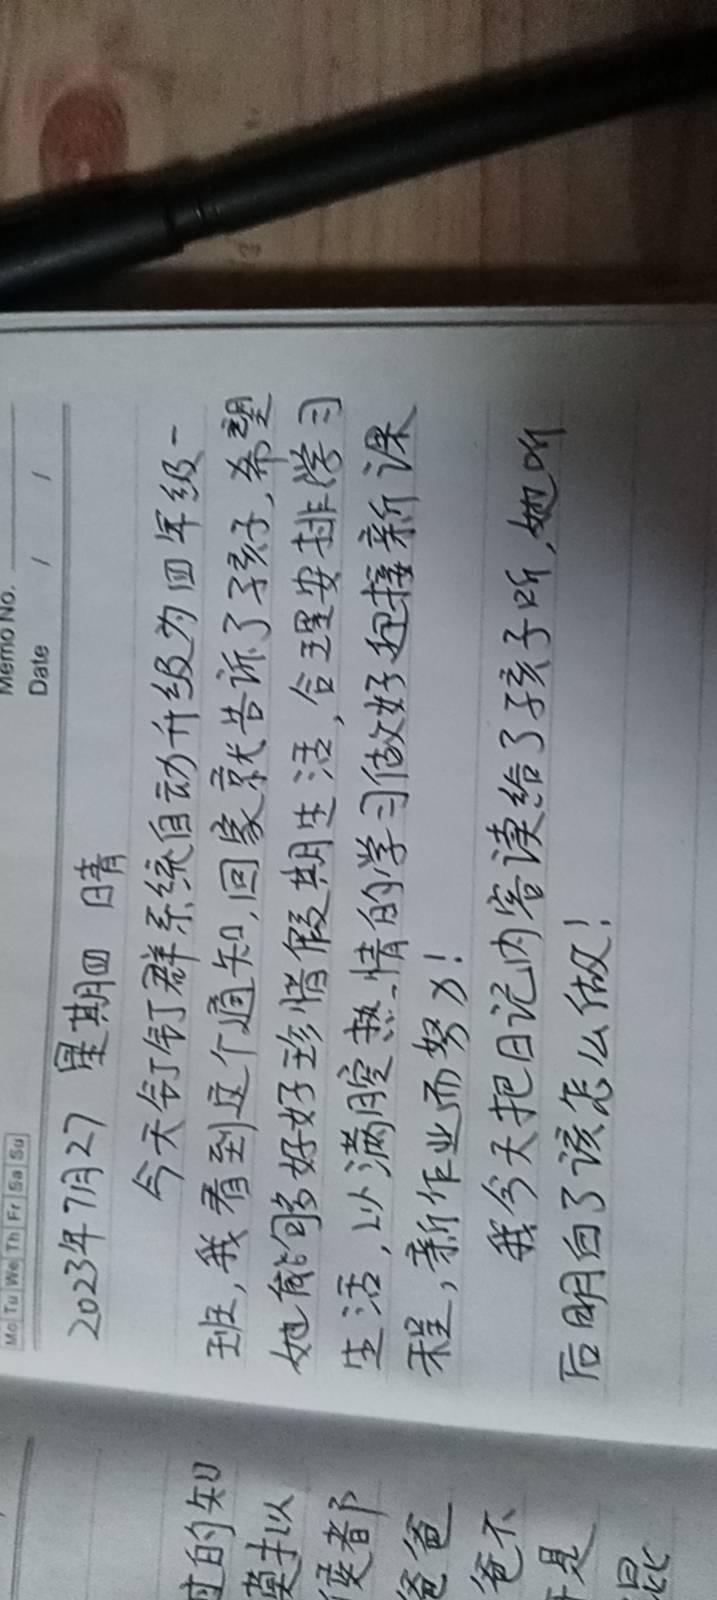 Memo No.
Mo Tu We Th Fr Sa Su
Date / /
2023年7月27 星期四 晴
今天钉钉群系统自动升级为四年级一
班,我看到这个通知,回家就告诉了孩子,希望
她能够好好珍惜假期生活,合理安排学习
生活,以满腔热情的学习做好迎接新课
程,新作业而努力!
我今天把日记内容读给了孩子听,她听
后明白了该怎么做!
过的知
莫扌以
使都
爸爸
爸不
是